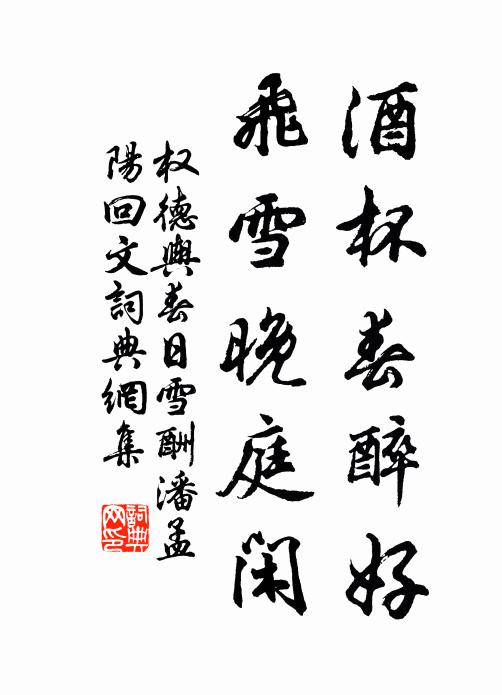 酒杯春醉好
飛雪晚庭閑
权德輿春日雪酬潘孟
陽回文詞典網集
詞典网印